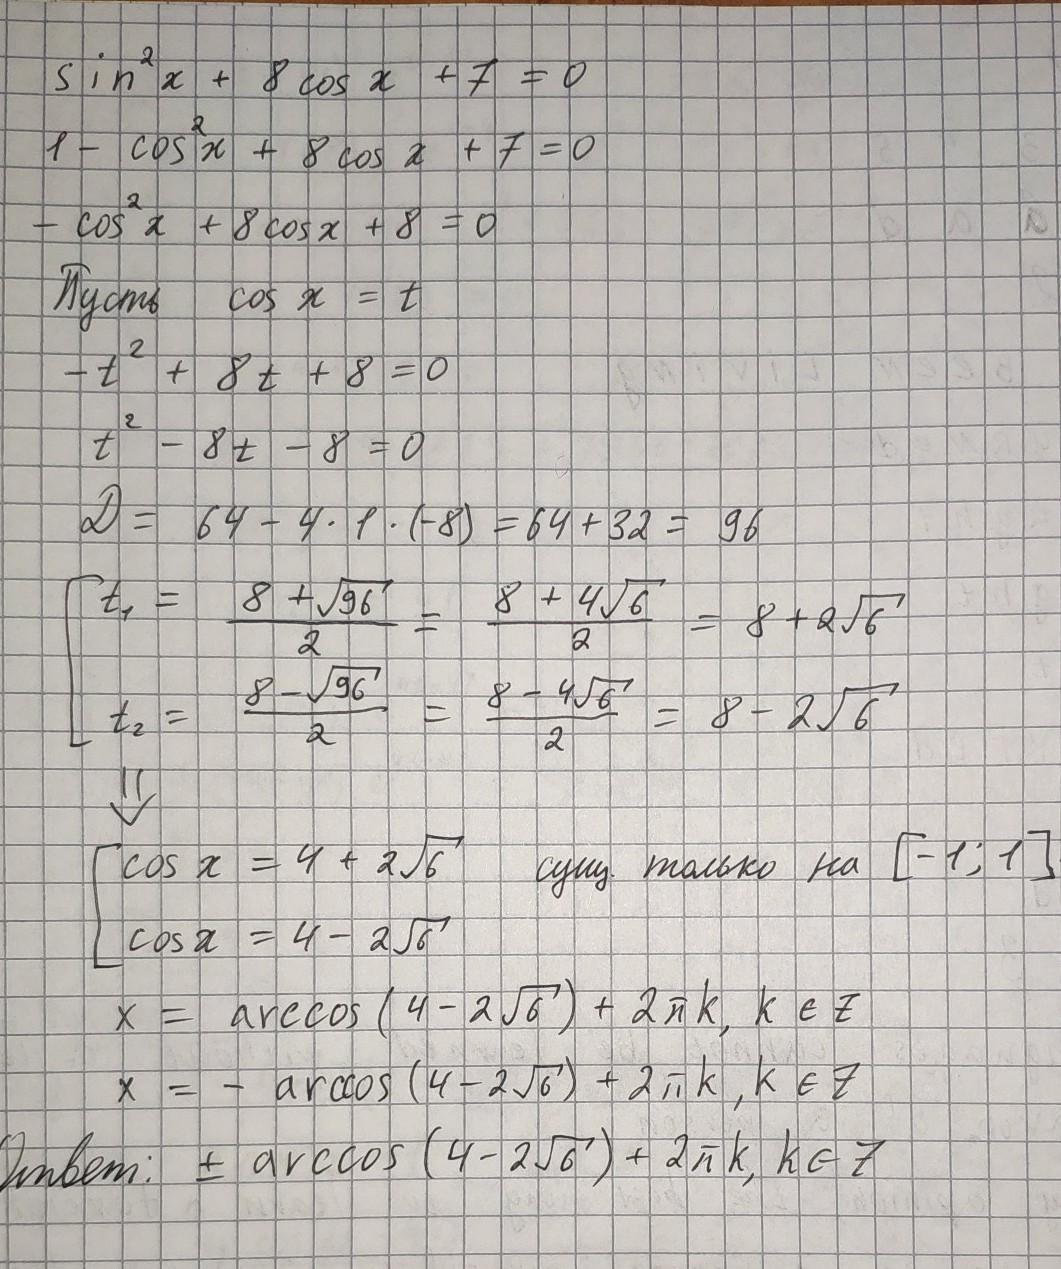 sin²x + 8 cos x + 7 = 0
1 - cos²x + 8 cos x + 7 = 0
- cos²x + 8 cos x + 8 = 0
Пусть cos x = t
-t² + 8t + 8 = 0
t² - 8t - 8 = 0
D = 64 - 4 · 1 · (-8) = 64 + 32 = 96
t₁ = (8 + √96)/2 = (8 + 4√6)/2 = 8 + 2√6
t₂ = (8 - √96)/2 = (8 - 4√6)/2 = 8 - 2√6
⇓
cos x = 4 + 2√6 сущ. только на [-1; 1]
cos x = 4 - 2√6
x = arccos(4 - 2√6) + 2πk, k ∈ Z
x = - arccos(4 - 2√6) + 2πk, k ∈ Z
Ответ: ± arccos(4 - 2√6) + 2πk, k ∈ Z